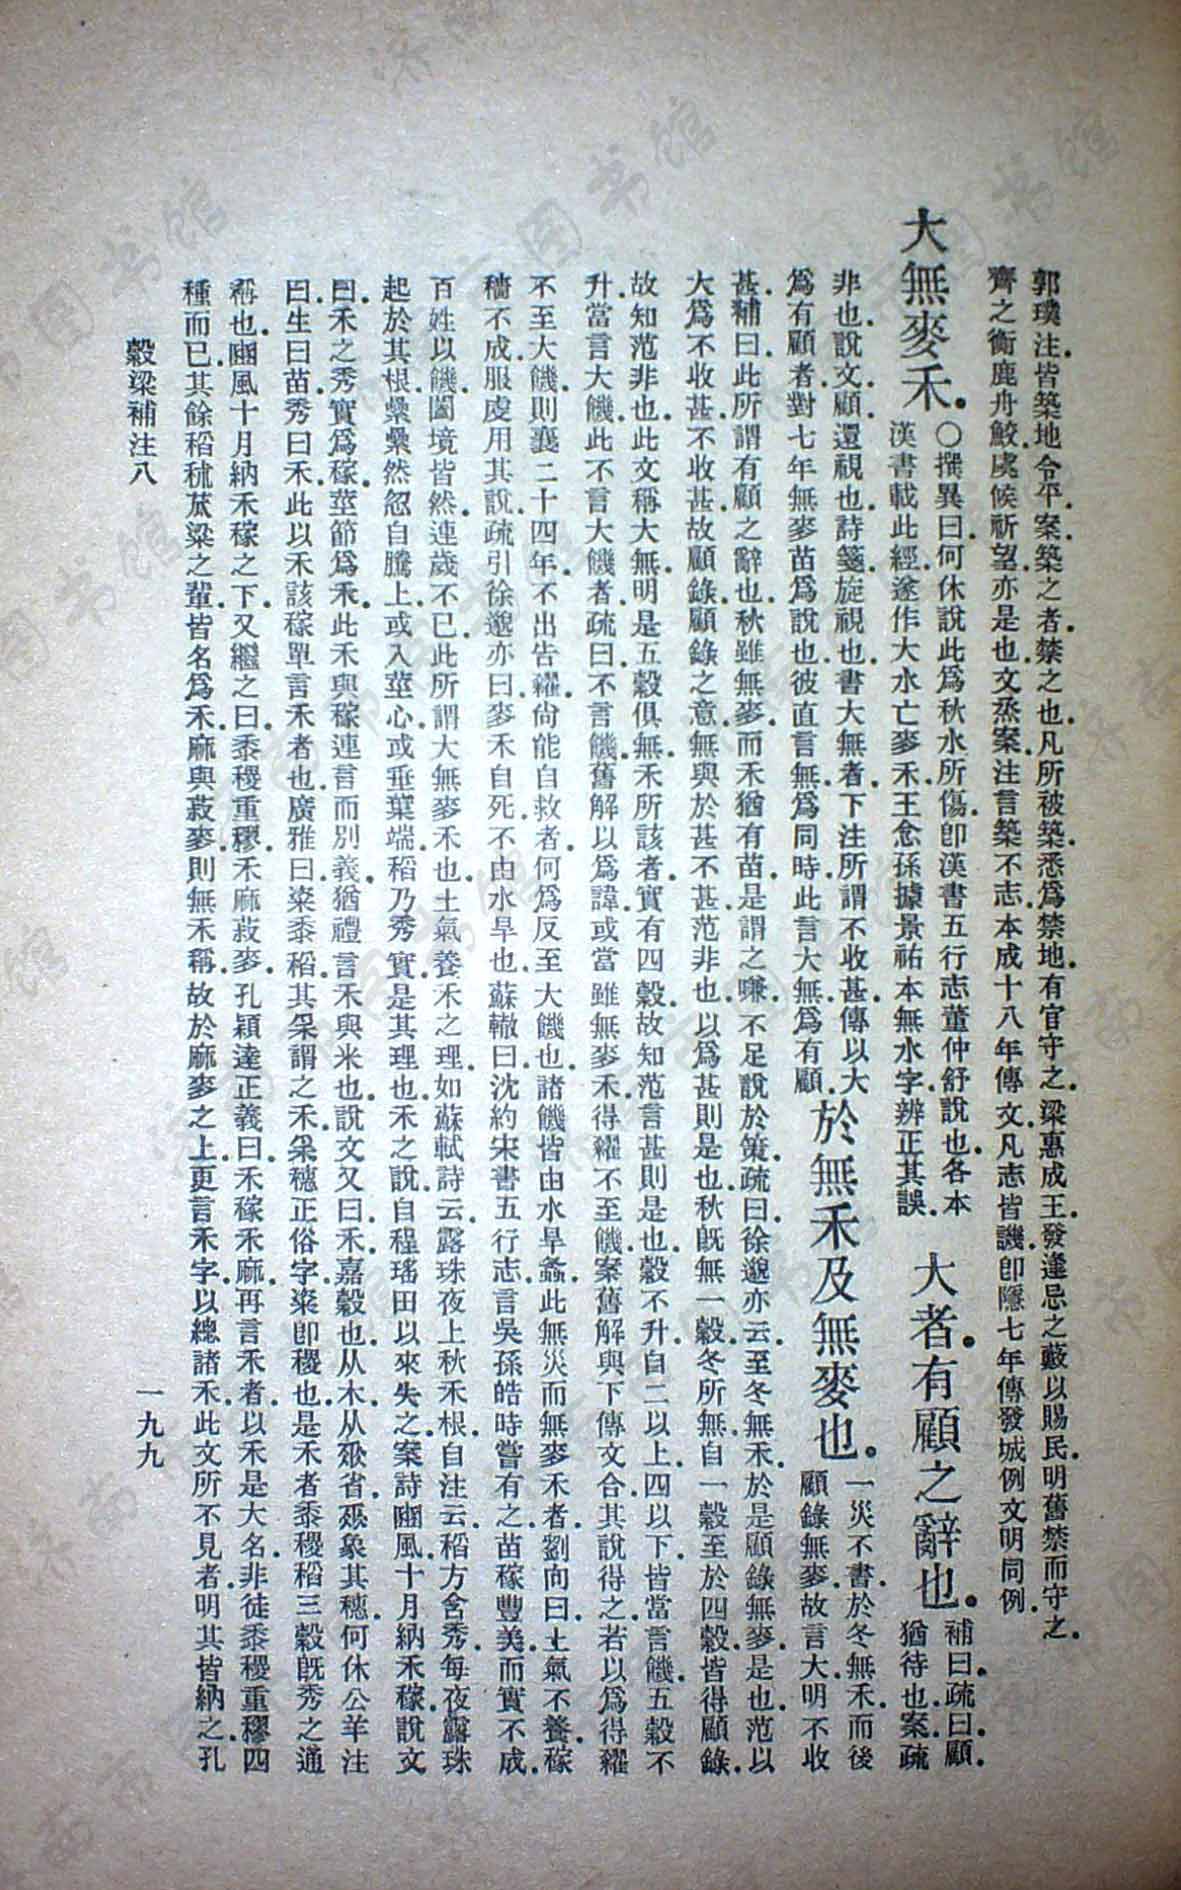 郭璞注皆築地令平案築之者禁之也凡所被築悉爲禁地有官守之梁惠成王發逢忌之藪以賜民明舊禁而守之
齊之衡鹿舟鮫虞候祈望亦是也文烝案注言築不志本成十八年傳文凡志皆譏卽隱七年傳發城例文明同例
大無麥禾○撰異曰何休說此爲秋水所傷卽漢書五行志董仲舒說也各本
漢書載此經遂作大水亡麥禾王念孫據景祐本無水字辨正其誤
大者有顧之辭也補曰疏曰顧
猶待也案疏
非也說文顧還視也詩箋旋視也書大無者下注所謂不收甚傳以大
爲有顧者對七年無麥苗爲說也彼直言無爲同時此言大無爲有顧
於無禾及無麥也一災不書於冬無禾而後
顧錄無麥故言大明不收
甚補曰此所謂有顧之辭也秋雖無麥而禾猶有苗是謂之嗛不足說於策疏曰徐邈亦云至冬無禾於是顧錄無麥是也范以
大爲不收甚不收甚故顧錄顧錄之意無與於甚不甚范非也以爲甚則是也秋旣無一穀冬所無自一穀至於四穀皆得顧錄
故知范非也此文稱大無明是五穀俱無禾所該者實有四穀故知范言甚則是也穀不升自二以上四以下皆當言饑五穀不
升當言大饑此不言大饑者疏曰不言饑舊解以爲諱或當雖無麥禾得糴不至饑案舊解與下傳文合其說得之若以爲得糴
不至大饑則襄二十四年不出告糴尙能自救者何爲反至大饑也諸饑皆由水旱螽此無災而無麥禾者劉向曰土氣不養稼
穡不成服虔用其說疏引徐邈亦曰麥禾自死不由水旱也蘇轍曰沈約宋書五行志言吳孫皓時嘗有之苗稼豐美而實不成
百姓以饑闔境皆然連歲不已此所謂大無麥禾也土氣養禾之理如蘇軾詩云露珠夜上秋禾根自注云稻方含秀每夜露珠
起於其根纍纍然忽自騰上或入莖心或垂葉端稻乃秀實是其理也禾之說自程瑤田以來失之案詩豳風十月納禾稼說文
曰禾之秀實爲稼莖節爲禾此禾與稼連言而別義猶禮言禾與米也說文又曰禾嘉穀也从木从𠂹省𠂹象其穗何休公羊注
曰生曰苗秀曰禾此以禾該稼單言禾者也廣雅曰粢黍稻其采謂之禾采穗正俗字粢卽稷也是禾者黍稷稻三穀旣秀之通
稱也豳風十月納禾稼之下又繼之曰黍稷重穋禾麻菽麥孔穎達正義曰禾稼禾麻再言禾者以禾是大名非徒黍稷重穋四
種而已其餘稻秫苽粱之輩皆名爲禾麻與菽麥則無禾稱故於麻麥之上更言禾字以總諸禾此文所不見者明其皆納之孔
穀梁補注八
一九九